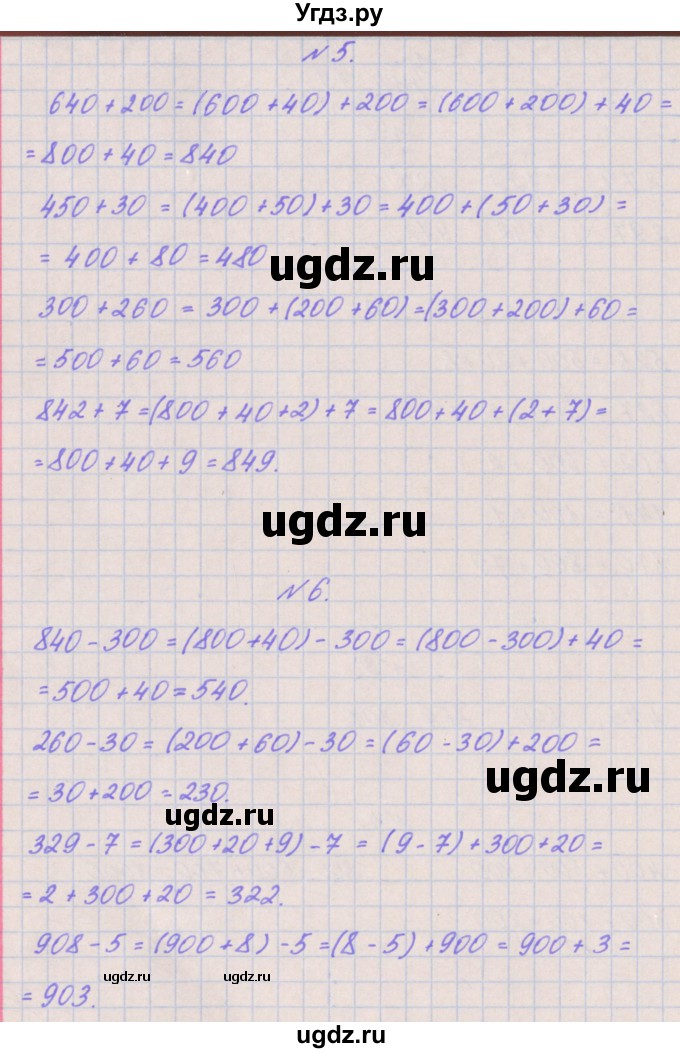 Угдз.ру
№5.
640 + 200 = (600 + 40) + 200 = (600 + 200) + 40 =
= 800 + 40 = 840
450 + 30 = (400 + 50) + 30 = 400 + (50 + 30) =
= 400 + 80 = 480
ugdz.ru
300 + 260 = 300 + (200 + 60) = (300 + 200) + 60 =
= 500 + 60 = 560
842 + 7 = (800 + 40 + 2) + 7 = 800 + 40 + (2 + 7) =
= 800 + 40 + 9 = 849.
ugdz.ru
№6.
840 - 300 = (800 + 40) - 300 = (800 - 300) + 40 =
= 500 + 40 = 540.
260 - 30 = (200 + 60) - 30 = (60 - 30) + 200 =
ugdz.ru
= 30 + 200 = 230.
ugdz.ru
329 - 7 = (300 + 20 + 9) - 7 = (9 - 7) + 300 + 20 =
= 2 + 300 + 20 = 322.
908 - 5 = (900 + 8) - 5 = (8 - 5) + 900 = 900 + 3 =
ugdz.ru ugdz.ru
= 903.
ugdz.ru